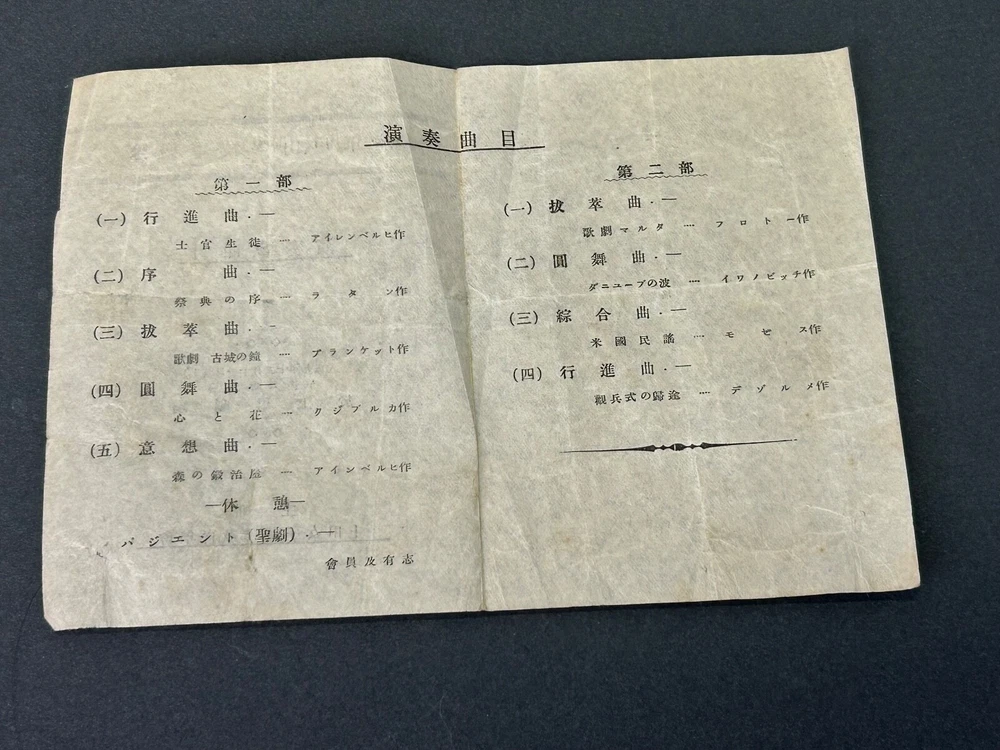 演奏曲目
第一部
(一) 行進曲・―
士官生徒 …… アイレンベルヒ作
(二) 序曲・―
祭典の序 …… ラタン作
(三) 抜萃曲・―
歌劇 古城の鐘 …… プランケット作
(四) 圓舞曲・―
心と花 …… クジブルカ作
(五) 意想曲・―
森の鍛治屋 …… アインベルヒ作
―休憩―
パジエント(聖劇)・―
會員及有志
第二部
(一) 抜萃曲・―
歌劇マルタ …… フロトー作
(二) 圓舞曲・―
ダニューブの波 …… イワノビッチ作
(三) 綜合曲・―
米國民謠 …… モセス作
(四) 行進曲・―
觀兵式の歸途 …… デゾルメ作